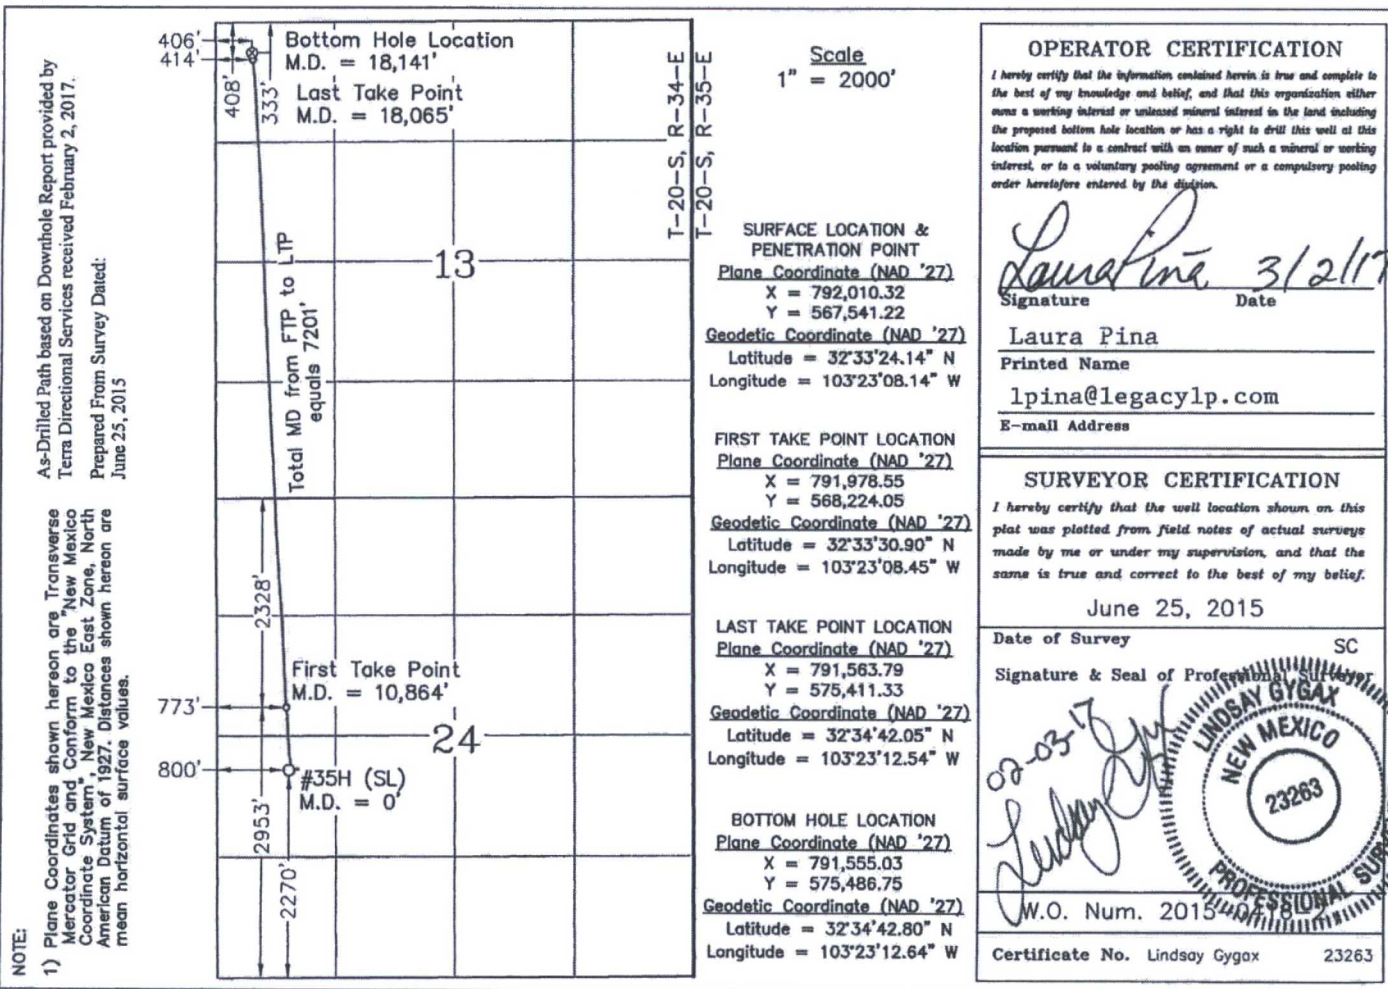 As-Drilled Path based on Downhole Report provided by
Terra Directional Services received February 2, 2017.
Prepared From Survey Dated:
June 25, 2015
NOTE:
1) Plane Coordinates shown hereon are Transverse
Mercator Grid and Conform to the "New Mexico
Coordinate System", New Mexico East Zone, North
American Datum of 1927. Distances shown hereon are
mean horizontal surface values.
406'
414'
408'
333'
Bottom Hole Location
M.D. = 18,141'
Last Take Point
M.D. = 18,065'
13
Total MD from FTP to LTP
equals 7201'
2328'
First Take Point
M.D. = 10,864'
773'
24
800'
#35H (SL)
M.D. = 0'
2953'
2270'
T-20-S, R-34-E
T-20-S, R-35-E
Scale
1" = 2000'
SURFACE LOCATION &
PENETRATION POINT
Plane Coordinate (NAD '27)
X = 792,010.32
Y = 567,541.22
Geodetic Coordinate (NAD '27)
Latitude = 32°33'24.14" N
Longitude = 103°23'08.14" W
FIRST TAKE POINT LOCATION
Plane Coordinate (NAD '27)
X = 791,978.55
Y = 568,224.05
Geodetic Coordinate (NAD '27)
Latitude = 32°33'30.90" N
Longitude = 103°23'08.45" W
LAST TAKE POINT LOCATION
Plane Coordinate (NAD '27)
X = 791,563.79
Y = 575,411.33
Geodetic Coordinate (NAD '27)
Latitude = 32°34'42.05" N
Longitude = 103°23'12.54" W
BOTTOM HOLE LOCATION
Plane Coordinate (NAD '27)
X = 791,555.03
Y = 575,486.75
Geodetic Coordinate (NAD '27)
Latitude = 32°34'42.80" N
Longitude = 103°23'12.64" W
OPERATOR CERTIFICATION
I hereby certify that the information contained herein is true and complete to
the best of my knowledge and belief, and that this organization either
owns a working interest or unleased mineral interest in the land including
the proposed bottom hole location or has a right to drill this well at this
location pursuant to a contract with an owner of such a mineral or working
interest, or to a voluntary pooling agreement or a compulsory pooling
order heretofore entered by the division.
Laura Pina 3/2/17
Signature Date
Laura Pina
Printed Name
lpina@legacylp.com
E-mail Address
SURVEYOR CERTIFICATION
I hereby certify that the well location shown on this
plat was plotted from field notes of actual surveys
made by me or under my supervision, and that the
same is true and correct to the best of my belief.
June 25, 2015
Date of Survey SC
Signature & Seal of Professional Surveyor
02-03-17
Lindsay Gygax
LINDSAY GYGAX
NEW MEXICO
23263
PROFESSIONAL
W.O. Num. 2015-0418
Certificate No. Lindsay Gygax 23263